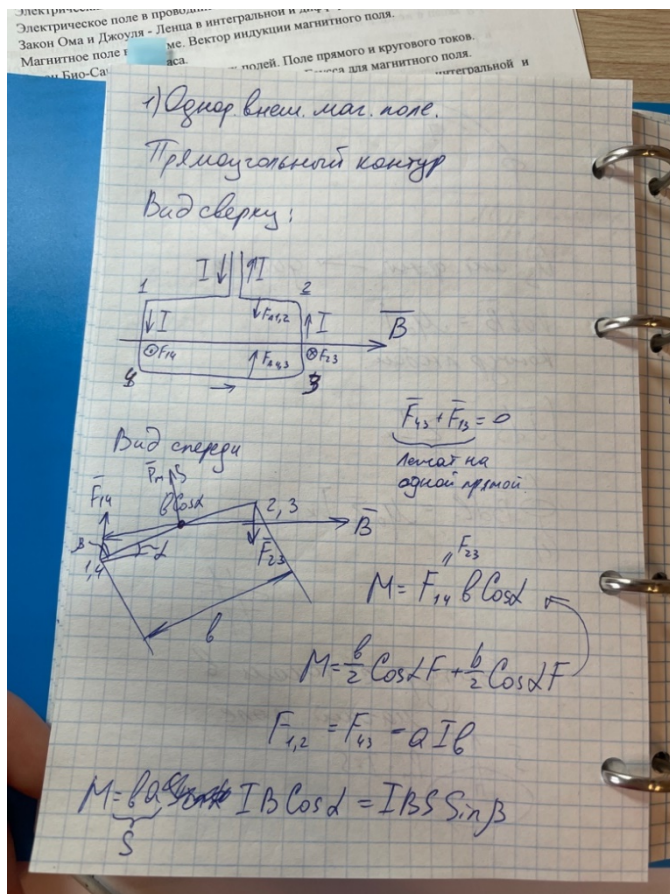 Электрическое поле в проводни
Закон Ома и Джоуля - Ленца в интегральной и диф
Магнитное поле в ме. Вектор индукции магнитного поля.
н Био-Са аса. полей. Поле прямого и кругового токов.
сса для магнитного поля.
интегральной и
1) Однор. внеш. маг. поле.
Прямоугольный контур
Вид сверху:
I I
1 2
I F_A1,2 I B̅
F_14 F_A4,3 F_23
4 3
F̅_43 + F̅_13 = 0
лежат на
одной прямой
Вид спереди
P̅_m
F̅_14 bCosα 2, 3 B̅
β α F̅_23
1,4
b
F_23
M = F_14 b Cosα
M = b/2 Cosα F + b/2 Cosα F
F_1,2 = F_43 = a I b
M = b a I B Cosα = I B S Sin β
S